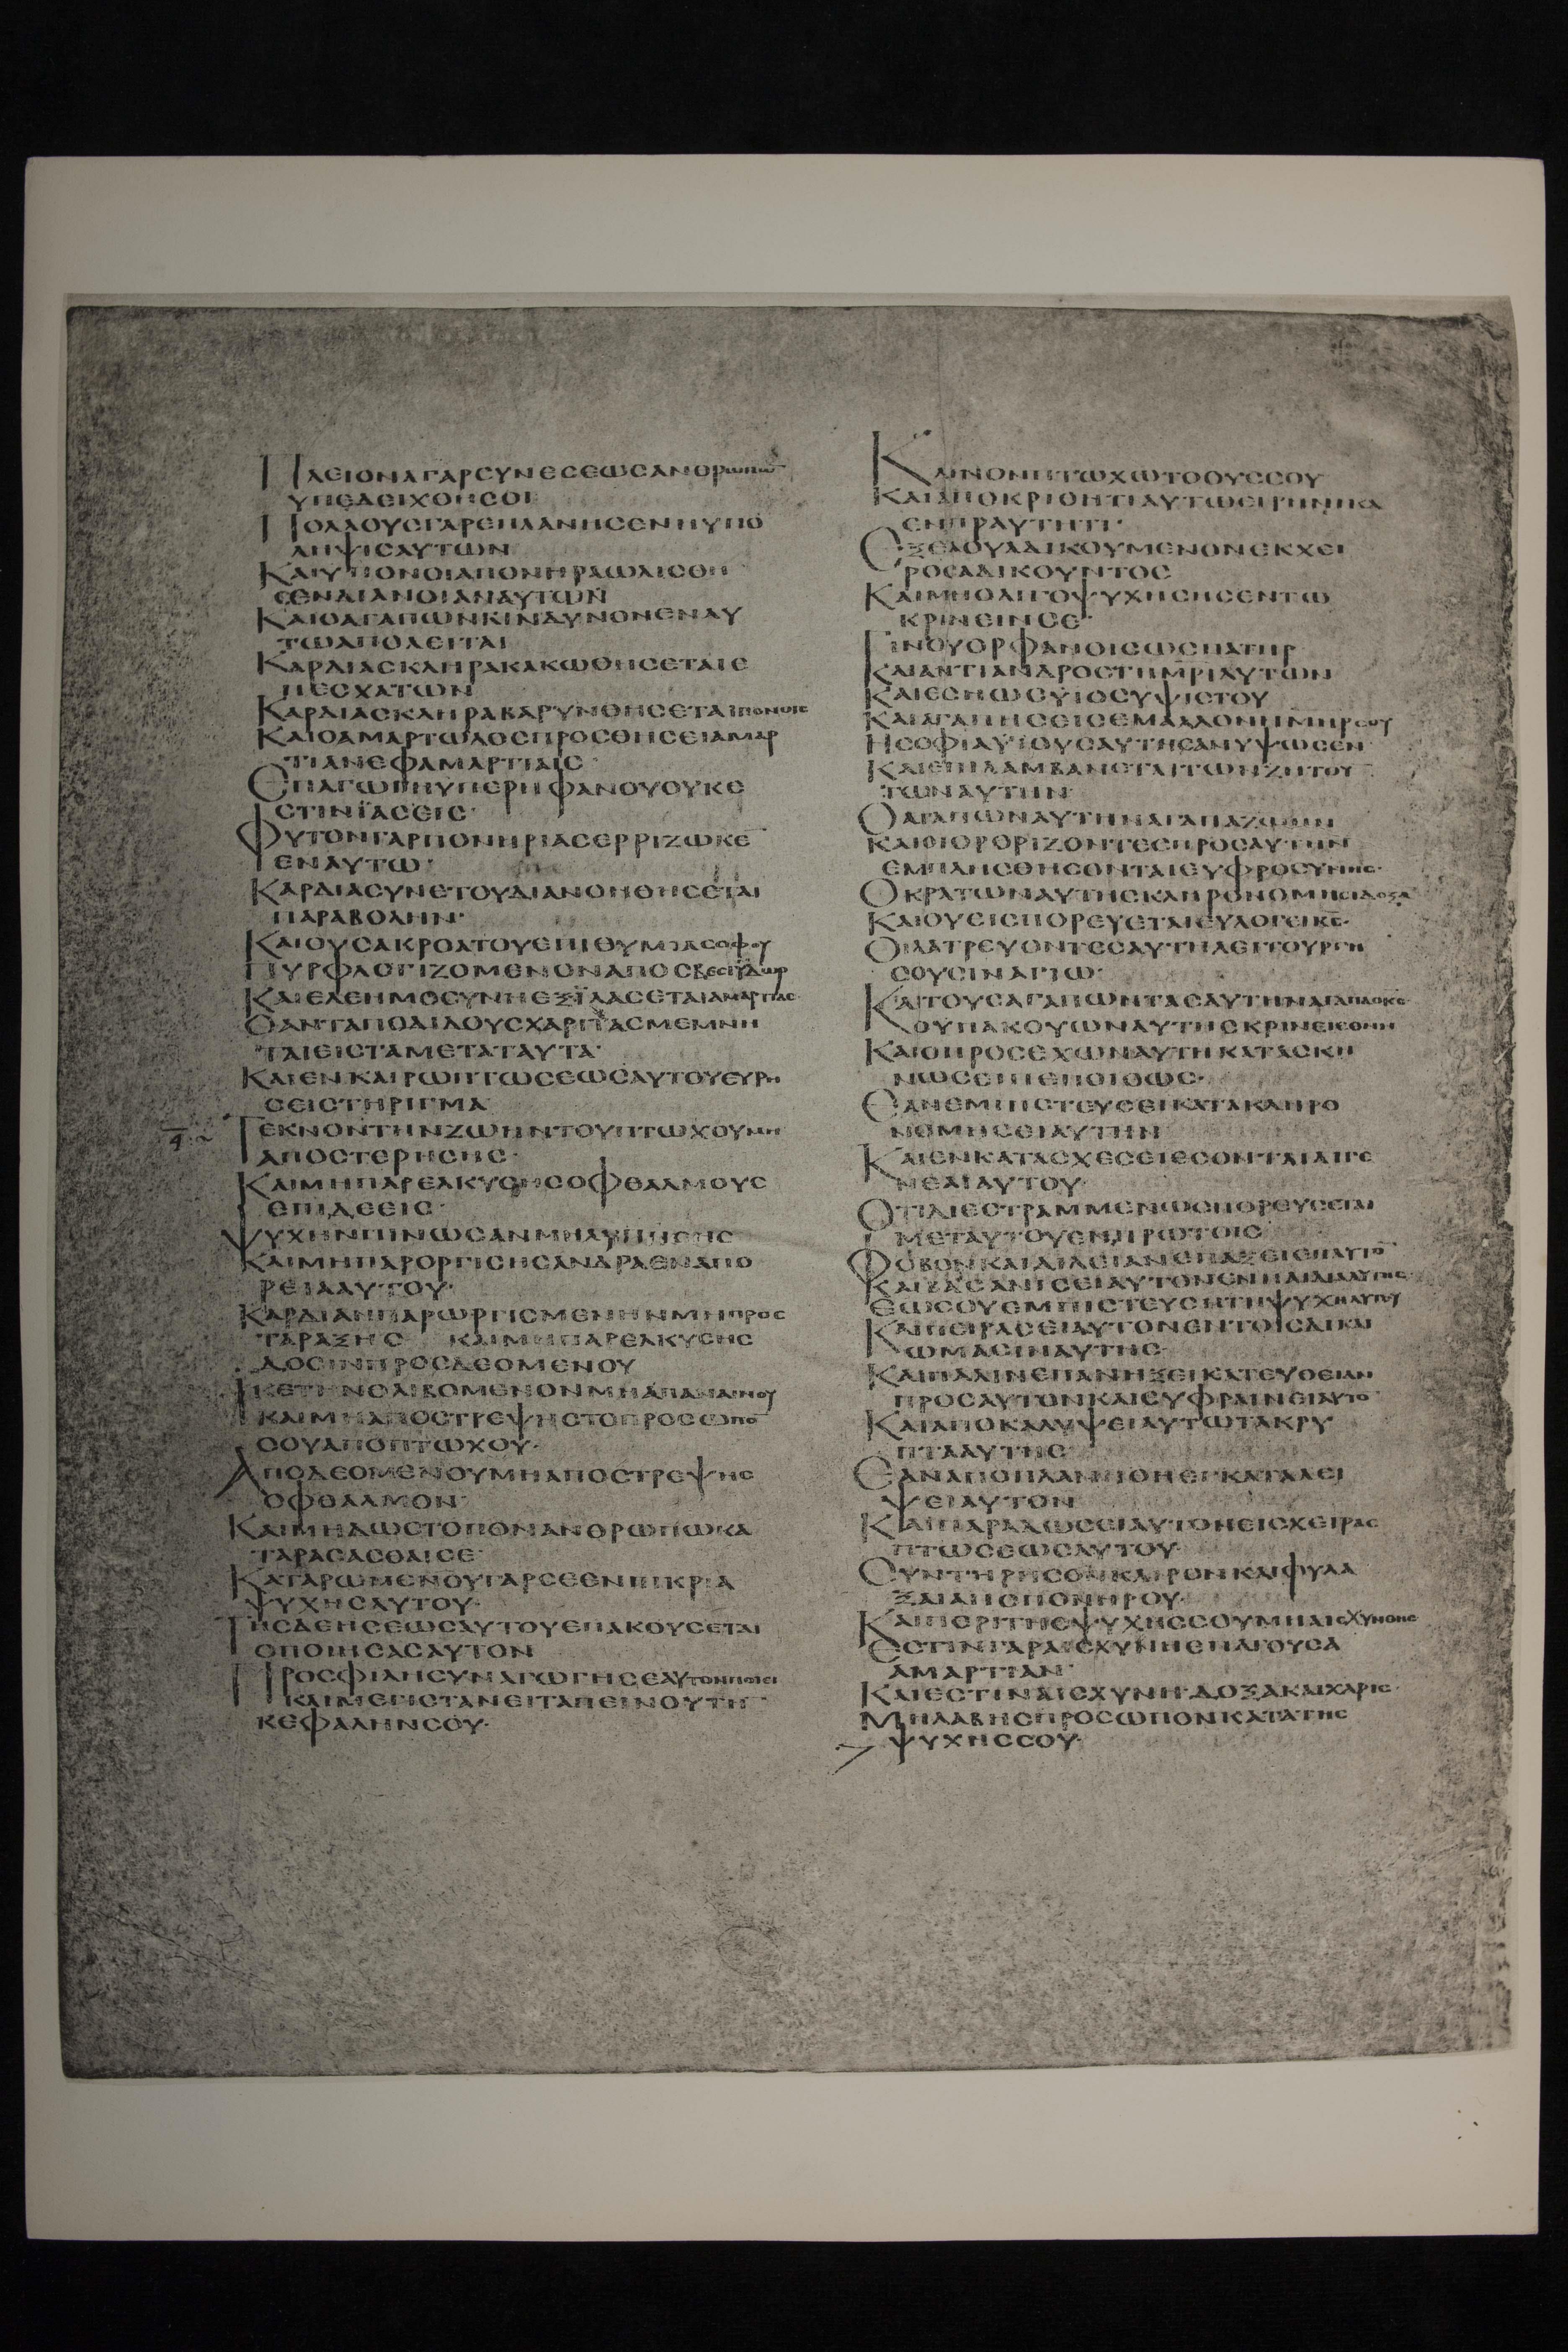 ΠΛΕΙΟΝΑΓΑΡΣΥΝΕΣΕΩΣΑΝΘΡΩΠΩ̅
ΥΠΕΔΕΙΧΘΗΣΟΙ
ΠΟΛΛΟΥΣΓΑΡΕΠΛΑΝΗΣΕΝΗΥΠΟ
ΛΗΨΙΣΑΥΤΩΝ
ΚΑΙΥΠΟΝΟΙΑΠΟΝΗΡΑΩΛΙΣΘΗ
ΣΕΝΔΙΑΝΟΙΑΝΑΥΤΩΝ
ΚΑΙΟΑΓΑΠΩΝΚΙΝΔΥΝΟΝΕΝΑΥ
ΤΩΑΠΟΛΕΙΤΑΙ
ΚΑΡΔΙΑΣΚΛΗΡΑΚΑΚΩΘΗΣΕΤΑΙΕ
ΠΕΣΧΑΤΩΝ
ΚΑΡΔΙΑΣΚΛΗΡΑΒΑΡΥΝΘΗΣΕΤΑΙΠΟΝΟΙΣ
ΚΑΙΟΑΜΑΡΤΩΛΟΣΠΡΟΣΘΗΣΕΙΑΜΑΡ
ΤΙΑΝΕΦΑΜΑΡΤΙΑΙΣ·
ΕΠΑΓΩΓΗΥΠΕΡΗΦΑΝΟΥΟΥΚΕ
ΣΤΙΝΪΑΣΕΙΣ·
ΦΥΤΟΝΓΑΡΠΟΝΗΡΙΑΣΕΡΡΙΖΩΚΕ̅
ΕΝΑΥΤΩ·
ΚΑΡΔΙΑΣΥΝΕΤΟΥΔΙΑΝΟΗΘΗΣΕΤΑΙ
ΠΑΡΑΒΟΛΗΝ·
ΚΑΙΟΥΣΑΚΡΟΑΤΟΥΕΠΙΘΥΜΙΑΣΟΦΟΥ
ΠΥΡΦΛΟΓΙΖΟΜΕΝΟΝΑΠΟΣΒΕΣΙΫΔΩΡ
ΚΑΙΕΛΕΗΜΟΣΥΝΗΕΞΪΛΑΣΕΤΑΙΑΜΑΡΤΙΑΣ·
ΟΑΝΤΑΠΟΔΙΔΟΥΣΧΑΡΙΤΑΣΜΕΜΝΗ
ΤΑΙΕΙΣΤΑΜΕΤΑΤΑΥΤΑ·
ΚΑΙΕΝΚΑΙΡΩΠΤΩΣΕΩΣΑΥΤΟΥΕΥΡΗ
ΣΕΙΣΤΗΡΙΓΜΑ
ΤΕΚΝΟΝΤΗΝΖΩΗΝΤΟΥΠΤΩΧΟΥΜΗ
ΑΠΟΣΤΕΡΗΣΗΣ·
ΚΑΙΜΗΠΑΡΕΛΚΥΣΗΣΟΦΘΑΛΜΟΥΣ
ΕΠΙΔΕΕΙΣ·
ΨΥΧΗΝΠΙΝΩΣΑΝΜΗΛΥΠΗΣΗΣ
ΚΑΙΜΗΠΑΡΟΡΓΙΣΗΣΑΝΔΡΑΕΝΑΠΟ
ΡΕΙΑΑΥΤΟΥ·
ΚΑΡΔΙΑΝΠΑΡΩΡΓΙΣΜΕΝΗΝΜΗΠΡΟΣ
ΤΑΡΑΞΗΣ ΚΑΙΜΗΠΑΡΕΛΚΥΣΗΣ
ΔΟΣΙΝΠΡΟΣΔΕΟΜΕΝΟΥ
ΙΚΕΤΗΝΘΛΙΒΟΜΕΝΟΝΜΗΑΠΑΝΑΙΝΟΥ
ΚΑΙΜΗΑΠΟΣΤΡΕΨΗΣΤΟΠΡΟΣΩΠΟ̅
ΣΟΥΑΠΟΠΤΩΧΟΥ·
ΑΠΟΔΕΟΜΕΝΟΥΜΗΑΠΟΣΤΡΕΨΗΣ
ΟΦΘΑΛΜΟΝ·
ΚΑΙΜΗΔΩΣΤΟΠΟΝΑΝΘΡΩΠΩΚΑ
ΤΑΡΑΣΑΣΘΑΙΣΕ·
ΚΑΤΑΡΩΜΕΝΟΥΓΑΡΣΕΕΝΠΙΚΡΙΑ
ΨΥΧΗΣΑΥΤΟΥ·
ΤΗΣΔΕΗΣΕΩΣΑΥΤΟΥΕΠΑΚΟΥΣΕΤΑΙ
ΟΠΟΙΗΣΑΣΑΥΤΟΝ
ΠΡΟΣΦΙΛΗΣΥΝΑΓΩΓΗΣΕΑΥΤΟΝΠΟΙΕΙ
ΚΑΙΜΕΓΙΣΤΑΝΕΙΤΑΠΕΙΝΟΥΤΗ̅
ΚΕΦΑΛΗΝΣΟΥ·
ΚΛΙΝΟΝΠΤΩΧΩΤΟΟΥΣΣΟΥ
ΚΑΙΑΠΟΚΡΙΘΗΤΙΑΥΤΩΕΙΡΗΝΙΚΑ
ΕΝΠΡΑΥΤΗΤΙ·
ΕΞΕΛΟΥΑΔΙΚΟΥΜΕΝΟΝΕΚΧΕΙ
ΡΟΣΑΔΙΚΟΥΝΤΟΣ
ΚΑΙΜΗΟΛΙΓΟΨΥΧΗΣΗΣΕΝΤΩ
ΚΡΙΝΕΙΝΣΕ·
ΓΙΝΟΥΟΡΦΑΝΟΙΣΩΣΠΑΤΗΡ
ΚΑΙΑΝΤΙΑΝΔΡΟΣΤΗΜ̅Ρ̅ΙΑΥΤΩΝ
ΚΑΙΕΣΗΩΣΥΙΟΣΥΨΙΣΤΟΥ
ΚΑΙΑΓΑΠΗΣΕΙΣΕΜΑΛΛΟΝΗΜΗΡΣΟΥ
ΗΣΟΦΙΑΫΙΟΥΣΑΥΤΗΣΑΝΥΨΩΣΕΝ
ΚΑΙΕΠΙΛΑΜΒΑΝΕΤΑΙΤΩΝΖΗΤΟΥ̅
ΤΩΝΑΥΤΗΝ·
ΟΑΓΑΠΩΝΑΥΤΗΝΑΓΑΠΑΖΩΗΝ
ΚΑΙΟΙΟΡΘΡΙΖΟΝΤΕΣΠΡΟΣΑΥΤΗΝ
ΕΜΠΛΗΣΘΗΣΟΝΤΑΙΕΥΦΡΟΣΥΝΗΣ·
ΟΚΡΑΤΩΝΑΥΤΗΣΚΛΗΡΟΝΟΜΗΣΙΔΟΞΑ̅
ΚΑΙΟΥΕΙΣΠΟΡΕΥΕΤΑΙΕΥΛΟΓΕΙΚ̅Σ̅·
ΟΙΛΑΤΡΕΥΟΝΤΕΣΑΥΤΗΛΕΙΤΟΥΡΓΗ
ΣΟΥΣΙΝΑΓΙΩ·
ΚΑΙΤΟΥΣΑΓΑΠΩΝΤΑΣΑΥΤΗΝΑΓΑΠΑΟΚ̅Σ̅
ΟΥΠΑΚΟΥΩΝΑΥΤΗΣΚΡΙΝΕΙΕΘΝΗ
ΚΑΙΟΠΡΟΣΕΧΩΝΑΥΤΗΚΑΤΑΣΚΗ
ΝΩΣΕΙΠΕΠΟΙΘΩΣ·
ΕΑΝΕΜΠΙΣΤΕΥΣΕΙΚΑΤΑΚΛΗΡΟ
ΝΟΜΗΣΕΙΑΥΤΗΝ
ΚΑΙΕΝΚΑΤΑΣΧΕΣΕΙΕΣΟΝΤΑΙΑΙΓΕ
ΝΕΑΙΑΥΤΟΥ·
ΟΤΙΔΙΕΣΤΡΑΜΜΕΝΩΣΠΟΡΕΥΣΕΤΑΙ
ΜΕΤΑΥΤΟΥΕΝΠΡΩΤΟΙΣ
ΦΟΒΟΝΚΑΙΔΙΛΕΙΑΝΕΠΑΞΕΙΕΠΑΥΤΟ̅
ΚΑΙΒΑΣΑΝΙΣΕΙΑΥΤΟΝΕΝΠΑΙΔΙΑΑΥΤΗΣ·
ΕΩΣΟΥΕΜΠΙΣΤΕΥΣΗΤΗΨΥΧΗΑΥΤΟΥ
ΚΑΙΠΕΙΡΑΣΕΙΑΥΤΟΝΕΝΤΟΙΣΔΙΚΑΙ
ΩΜΑΣΙΝΑΥΤΗΣ·
ΚΑΙΠΑΛΙΝΕΠΑΝΗΞΕΙΚΑΤΕΥΘΕΙΑΝ
ΠΡΟΣΑΥΤΟΝΚΑΙΕΥΦΡΑΙΝΕΙΑΥΤΟ̅
ΚΑΙΑΠΟΚΑΛΥΨΕΙΑΥΤΩΤΑΚΡΥ
ΠΤΑΑΥΤΗΣ·
ΕΑΝΑΠΟΠΛΑΝΗΘΗΕΓΚΑΤΑΛΕΙ
ΨΕΙΑΥΤΟΝ
ΚΑΙΠΑΡΑΔΩΣΕΙΑΥΤΟΝΕΙΣΧΕΙΡΑΣ
ΠΤΩΣΕΩΣΑΥΤΟΥ·
ΣΥΝΤΗΡΗΣΟΝΚΑΙΡΟΝΚΑΙΦΥΛΑ
ΞΑΙΑΠΟΠΟΝΗΡΟΥ·
ΚΑΙΠΕΡΙΤΗΣΨΥΧΗΣΣΟΥΜΗΑΙΣΧΥΝΘΗΣ
ΕΣΤΙΝΓΑΡΑΙΣΧΥΝΗΕΠΑΓΟΥΣΑ
ΑΜΑΡΤΙΑΝ·
ΚΑΙΕΣΤΙΝΑΙΣΧΥΝΗ·ΔΟΞΑΚΑΙΧΑΡΙΣ·
ΜΗΛΑΒΗΣΠΡΟΣΩΠΟΝΚΑΤΑΤΗΣ
ΨΥΧΗΣΣΟΥ·